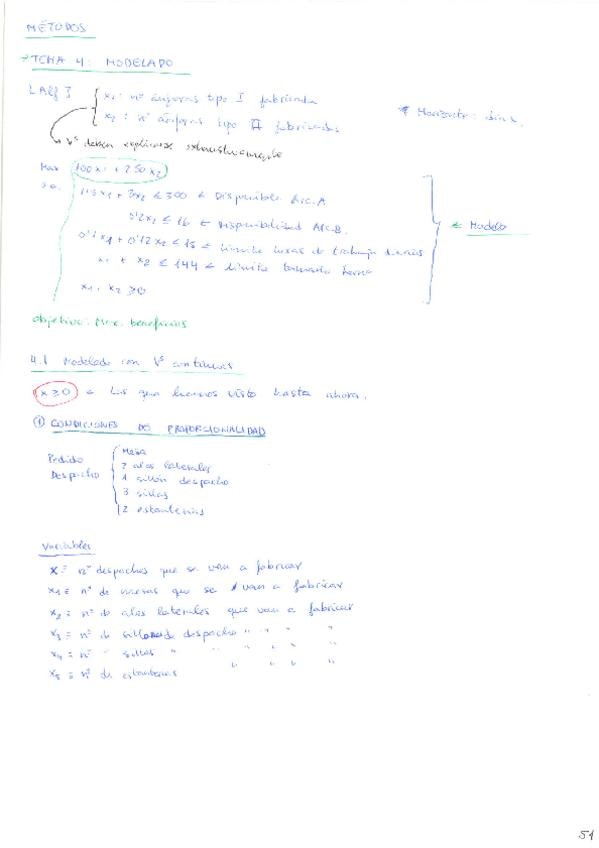 MÉTODOS
→ TEMA 4: MODELADO
x₁: nº ánforas tipo I fabricada
* Horizonte: días.
x₂: nº ánforas tipo II fabricadas
Vˢ deben explicarse exhaustivamente
Max 100x₁ + 250x₂
s.a. 1'5x₁ + 3x₂ ≤ 300 ← Disponible Arc. A
0'2x₂ ≤ 16 ← Disponibilidad Arc. B.
x₂ ≤ 15 ← Límite horas de trabajo diarias
← Modelo
x₁ + x₂ ≤ 144 ← límite horno
x₁, x₂ ≥ 0
Objetivo: Max. beneficios
4.1 Modelado con Vˢ continuas
x ≥ 0 ← Los que hemos visto hasta ahora.
① CONDICIONES DE PROPORCIONALIDAD
Pedido Despacho
Mesa
2 alas laterales
1 sillón despacho
3 sillas
2 estanterías
Variables
x ≡ nº despachos que se van a fabricar
x₁ ≡ nº de mesas que se van a fabricar
x₂ ≡ nº de alas laterales que van a fabricar
x₃ ≡ nº de sillones despacho " " " "
x₄ ≡ nº " sillas " " " " "
x₅ ≡ nº de estanterías " " " "
51